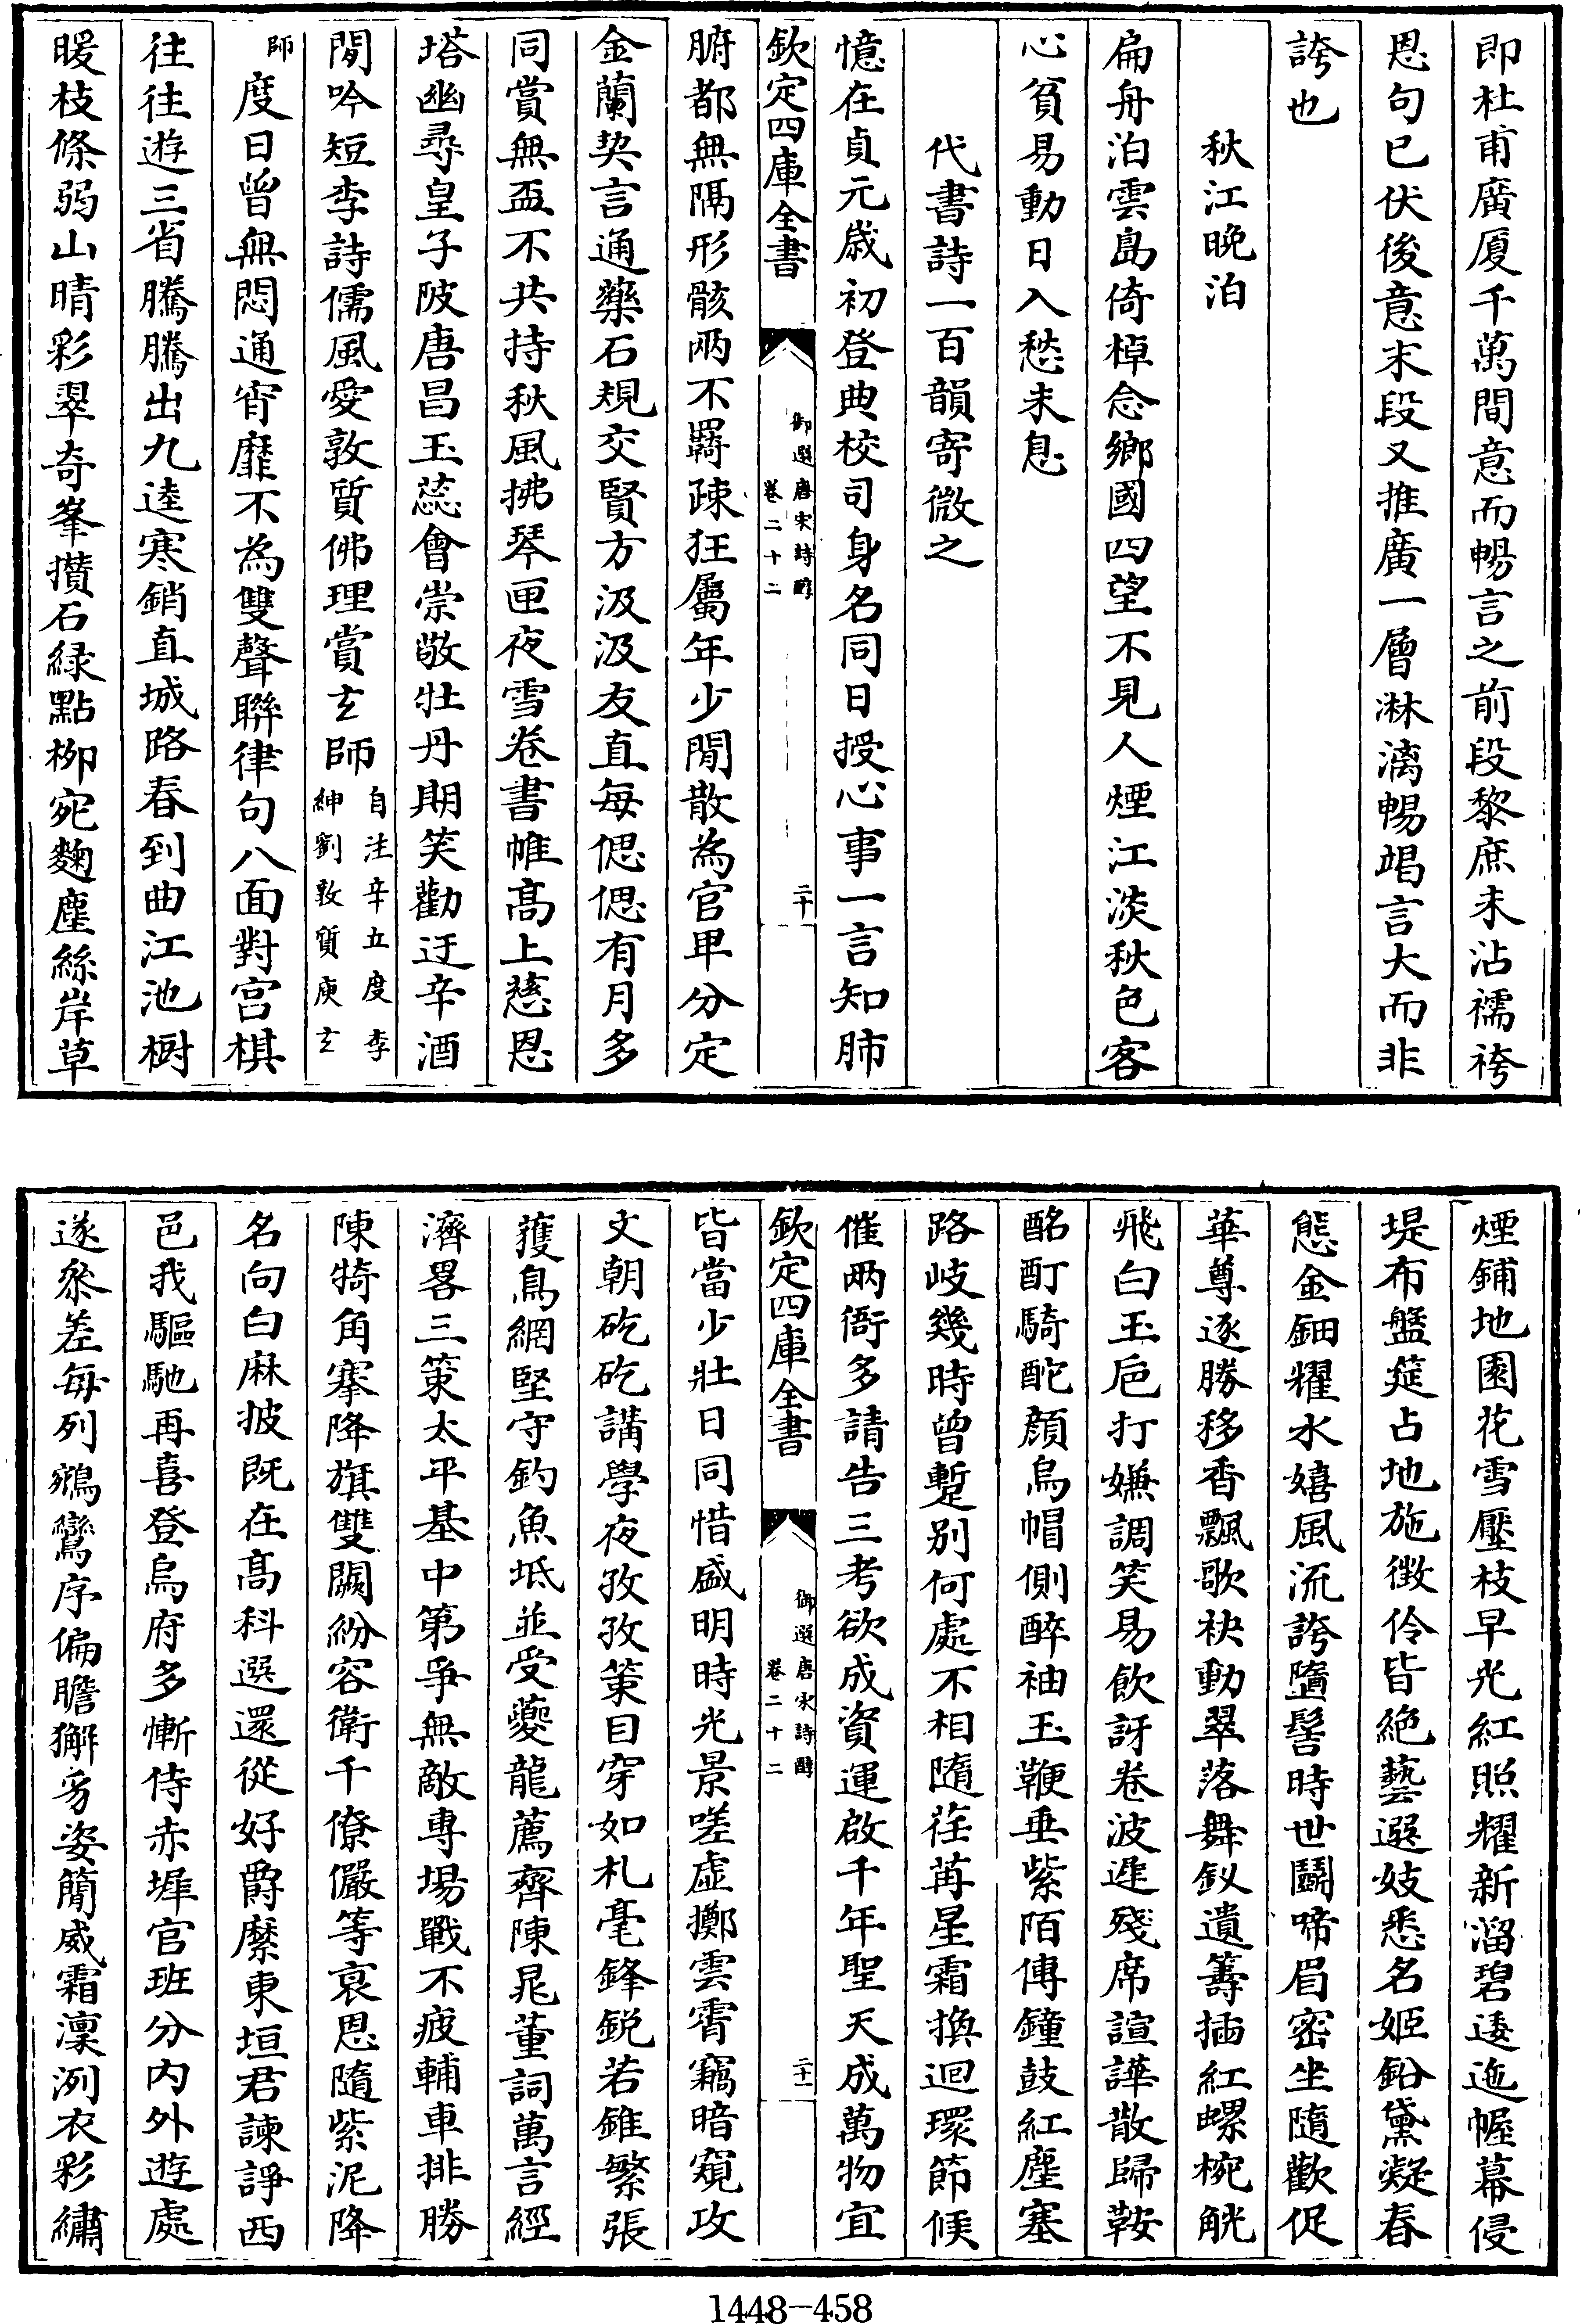 即杜甫廣厦千萬間意而暢言之前段黎庶未沾襦袴
恩句已伏後意末段又推廣一層淋漓暢竭言大而非
誇也
秋江晚泊
扁舟泊雲島倚棹念鄉國四望不見人煙江淡秋色客
心貧易動日入愁未息
代書詩一百韻寄微之
憶在貞元歲初登典校司身名同日授心事一言知肺
欽定四庫全書
御選唐宋詩醇
卷二十二
二十
腑都無隔形骸兩不羇疎狂屬年少閒散為官卑分定
金蘭契言通藥石規交賢方汲汲友直每偲偲有月多
同賞無盃不共持秋風拂琴匣夜雪卷書帷髙上慈恩
塔幽尋皇子陂唐昌玉蕊會崇敬牡丹期笑勸迂辛酒
閒吟短李詩儒風愛敦質佛理賞玄師自注辛立度李紳劉敦質庾玄
師度日曾無悶通宵靡不為雙聲聯律句八面對宫棋
往往遊三省騰騰出九逵寒銷直城路春到曲江池樹
暖枝條弱山晴彩翠奇峯攢石緑點柳宛麴塵絲岸草
煙鋪地園花雪壓枝早光紅照耀新溜碧逶迤幄幕侵
堤布盤筵占地施徴伶皆絶藝選妓悉名姬鉛黛凝春
態金鈿耀水嬉風流誇墮髻時世鬪啼眉密坐隨歡促
華尊逐勝移香飄歌袂動翠落舞釵遺籌插紅螺椀觥
飛白玉巵打嫌調笑易飲訝卷波遲殘席諠譁散歸鞍
酩酊騎酡顔烏帽側醉袖玉鞭垂紫陌傳鐘鼓紅塵塞
路岐幾時曾蹔别何處不相隨荏苒星霜換迴環節候
催兩衙多請告三考欲成資運啟千年聖天成萬物宜
欽定四庫全書
御選唐宋詩醇
卷二十二
二十一
皆當少壯日同惜盛明時光景嗟虚擲雲霄竊暗窺攻
文朝矻矻講學夜孜孜策目穿如札毫鋒鋭若錐繁張
獲鳥網堅守釣魚坻並受夔龍薦齊陳晁董詞萬言經
濟畧三策太平基中第爭無敵專場戰不疲輔車排勝
陳犄角搴降旗雙闕紛容衛千僚儼等衰恩隨紫泥降
名向白麻披既在髙科選還從好爵縻東垣君諫諍西
邑我驅馳再喜登烏府多慚侍赤墀官班分内外遊處
遂叅差每列鵷鸞序偏瞻獬豸姿簡威霜凜冽衣彩繡
1448-458